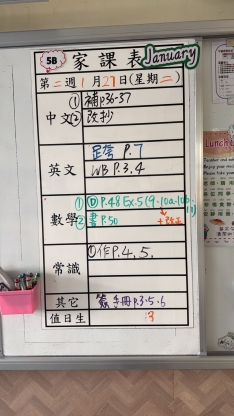 5B 家課表 January
第二週1月27日(星期二)
中文 ① 補p36-37
② 改抄
英文 P.7
WB P.3.4
數學 ① P.48 Ex.5(9.10a.10b.11)
② 書P.50 +改正
常識 ①作P.4, 5.
其它 簽手冊P.3.5.6
值日生 :3
Lunch